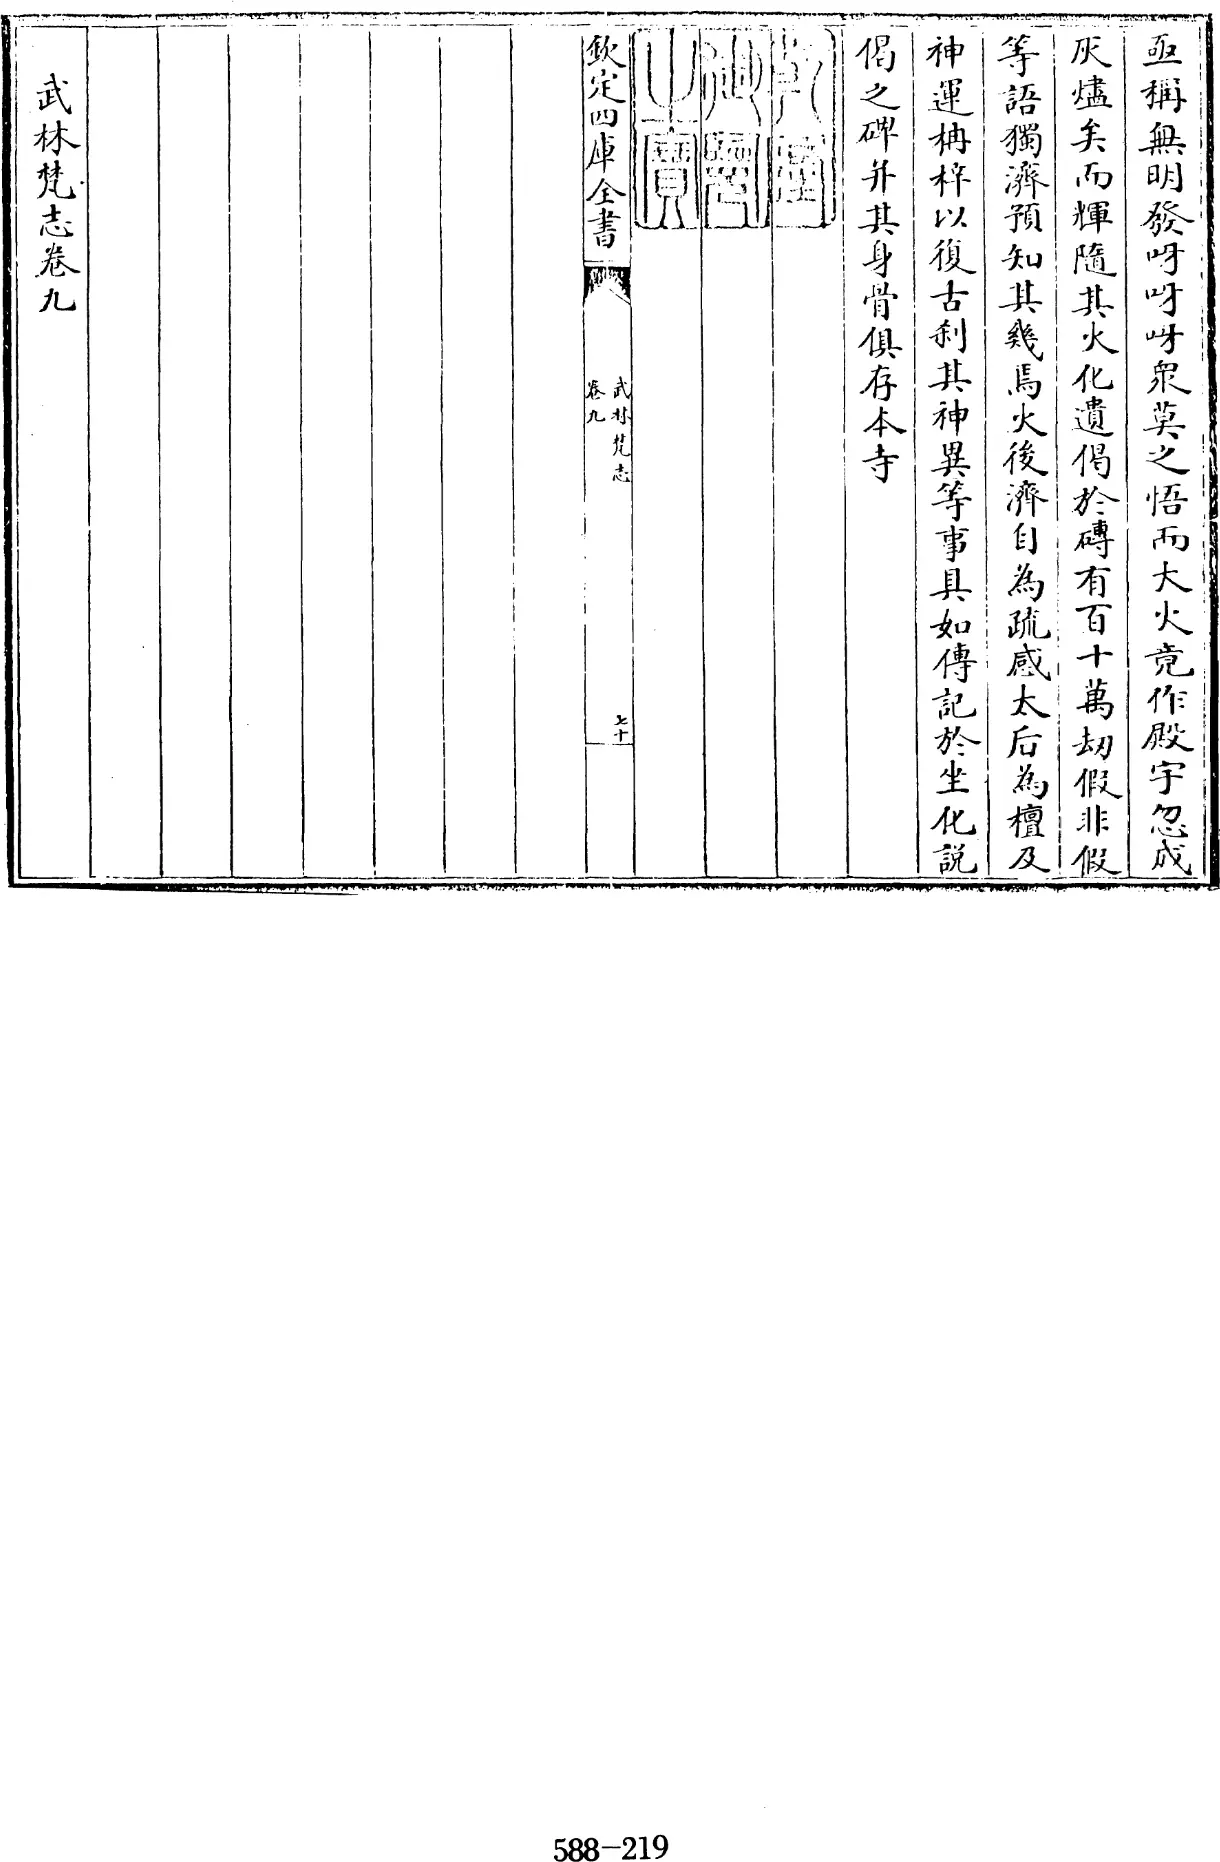 亟稱無明發呀呀呀衆莫之悟而大火竟作殿宇忽成
灰燼矣而輝隨其火化遺偈於磚有百十萬劫假非假
等語獨濟預知其幾焉火後濟自為疏感太后為檀及
神運柟梓以復古刹其神異等事具如傳記於坐化說
偈之碑并其身骨俱存本寺
乾隆
御覽
之寶
欽定四庫全書
武林梵志
卷九
七十
武林梵志卷九
588-219